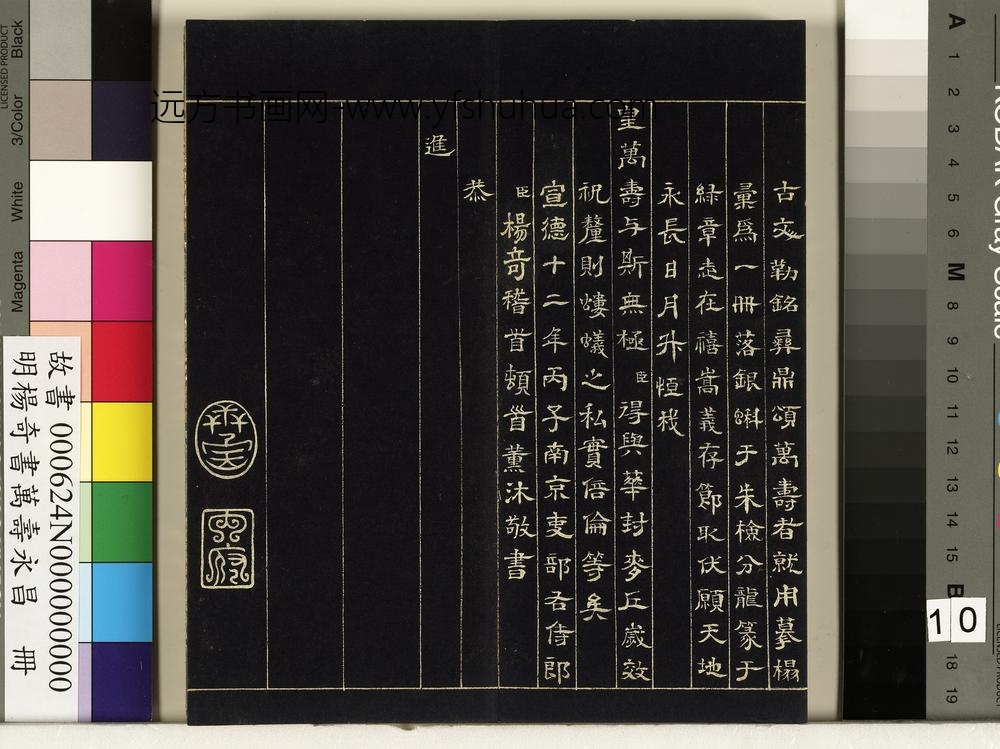 古文勒銘彝鼎頌萬壽者就用摹榻
彙爲一冊落銀蝌于朱檢分龍篆于
緑章志在禧嵩義存節取伏願天地
永長日月升恒我
皇萬壽与斯無極臣得與華封麥丘嵗效
祝釐則螻蟻之私實倍倫等矣
宣德十二年丙子南京吏部右侍郎
臣楊奇稽首頓首薰沐敬書
恭
進
远方书画网-www.yfshuhua.com
故書 000624N000000000
明楊奇書萬壽永昌 冊
LICENSED PRODUCT
Black
3/Color
White
Magenta
A 1 2 3 4 5 6 M 8 9 10 11 12 13 14 15 B 18 19
10